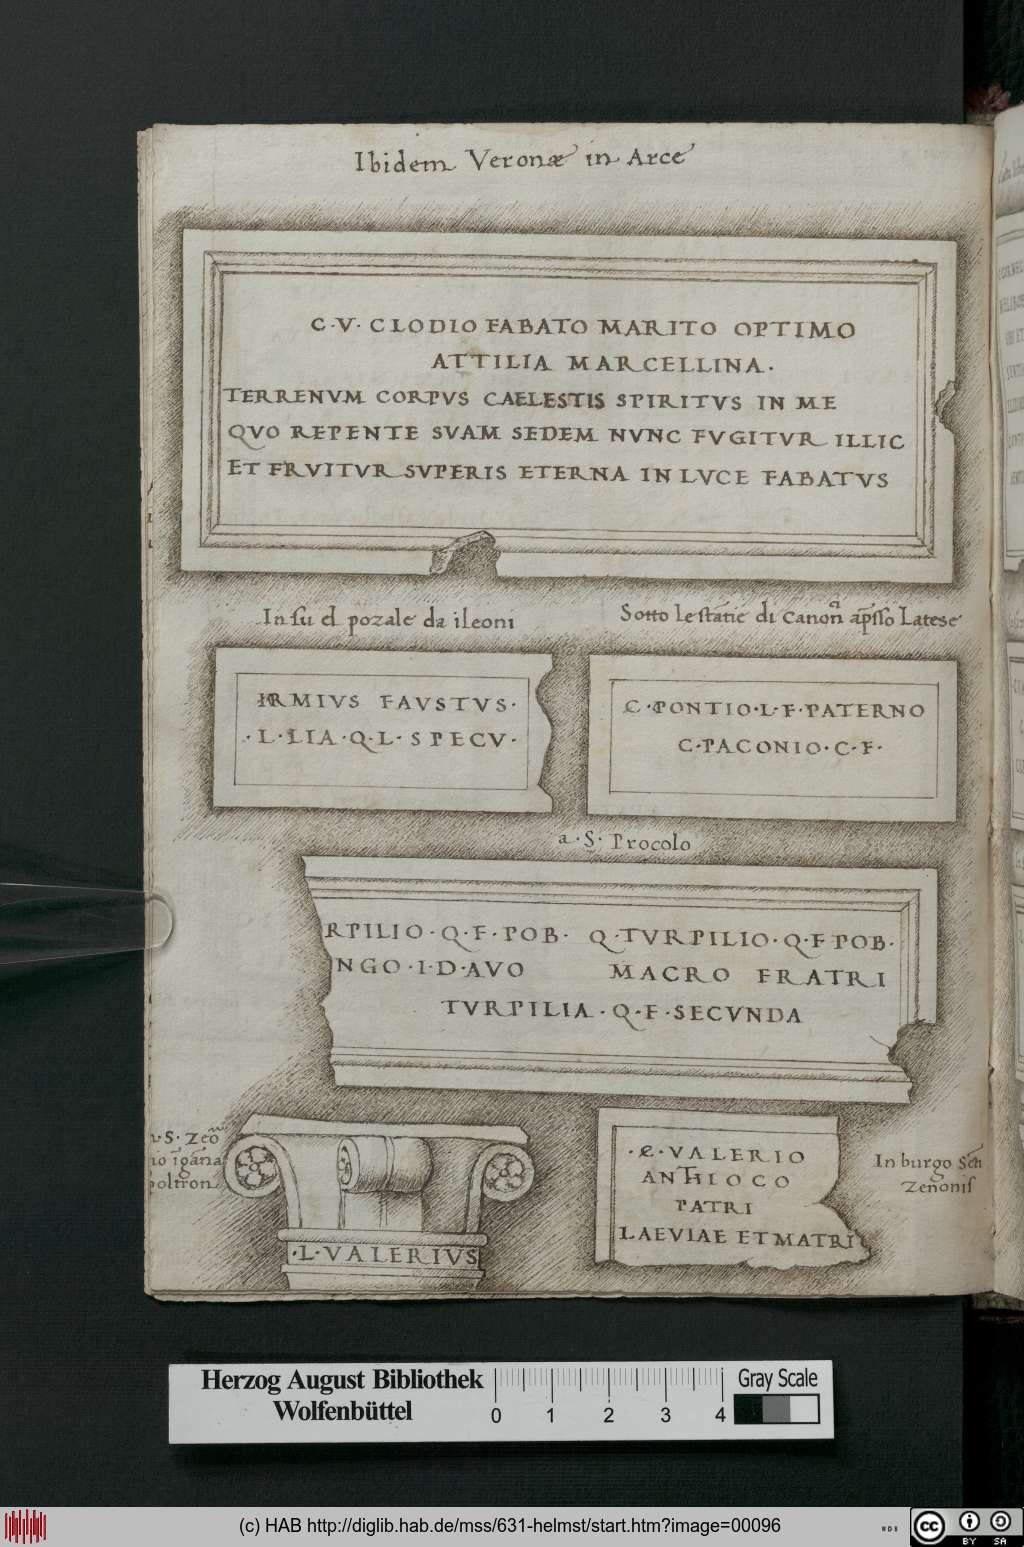 Ibidem Veronæ in Arce
C·V· CLODIO FABATO MARITO OPTIMO
ATTILIA MARCELLINA·
TERRENVM CORPVS CAELESTIS SPIRITVS IN ME
QVO REPENTE SVAM SEDEM NVNC FVGITVR ILLIC
ET FRVITVR SVPERIS ETERNA IN LVCE FABATVS
In su el pozale da ileoni
Sotto le statie di Canon̄ ap̄sso Latese
IRMIVS FAVSTVS·
·L·LIA·Q·L·SPECV·
C·PONTIO·L·F·PATERNO
C·PACONIO·C·F·
a·S·Procolo
RPILIO·Q·F·POB· Q·TVRPILIO·Q·F POB·
NGO·I·D·AVO MACRO FRATRI
TVRPILIA·Q·F·SECVNDA
S· Zeō
io īgana
poltron
·L·VALERIVS
·C·VALERIO
ANTHIOCO
PATRI
LAEVIAE ET MATRI
In burgo Scti
Zenonis
Herzog August Bibliothek
Wolfenbüttel
0 1 2 3 4
Gray Scale
(c) HAB http://diglib.hab.de/mss/631-helmst/start.htm?image=00096
WDB
CC BY SA